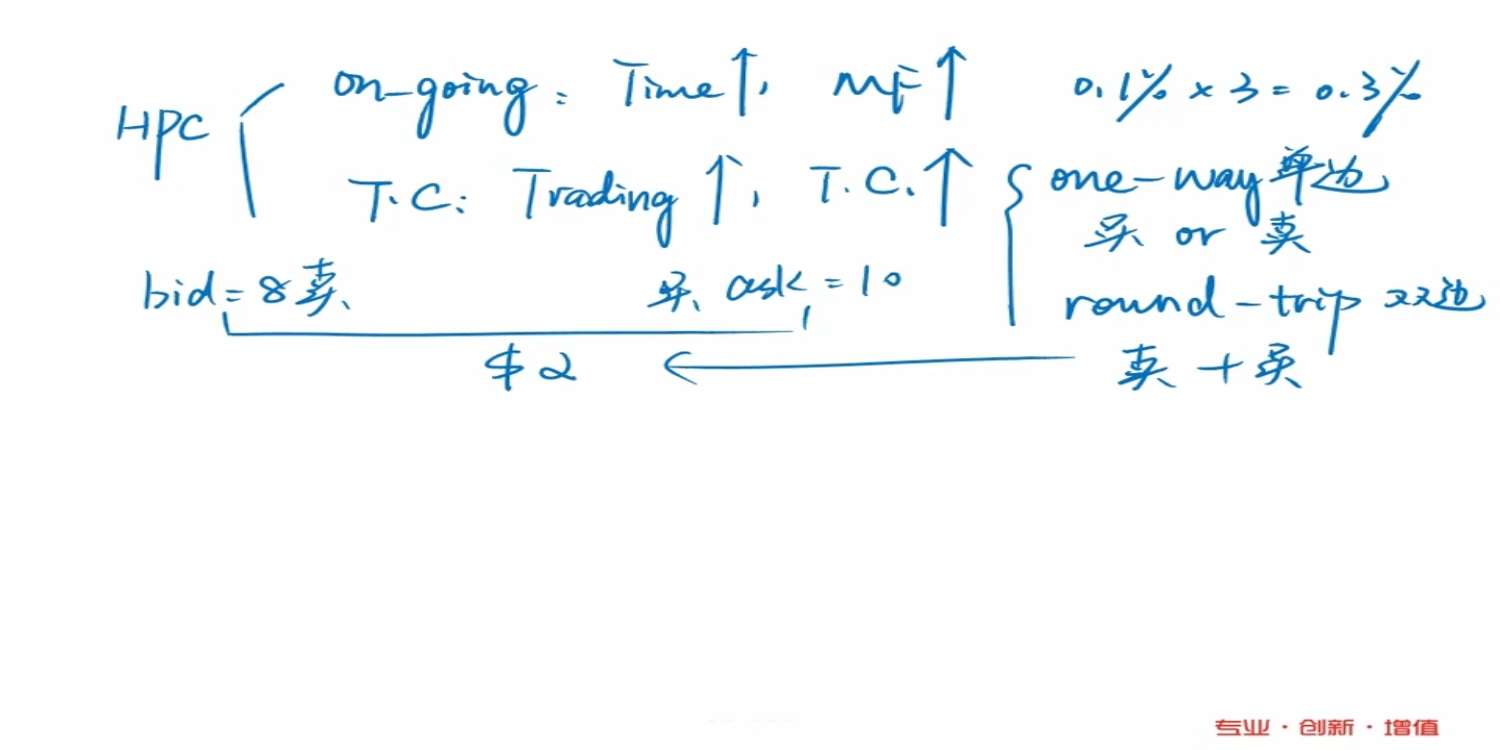 HPC
on-going: Time↑, MF↑ 0.1% × 3 = 0.3%
T.C: Trading↑, T.C.↑
one-way 单边
买 or 卖
bid = 8 卖、 买、ask = 10
round-trip 双边
$2 ← 卖 + 买
专业·创新·增值